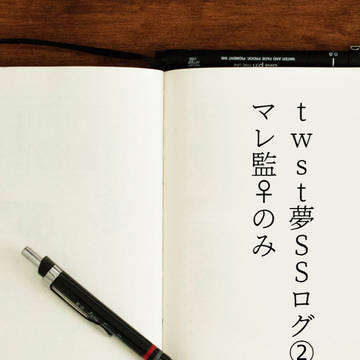 twst夢SSログ②
マレ監♀のみ
WATER AND FADE PROOF, PIGMENT INK